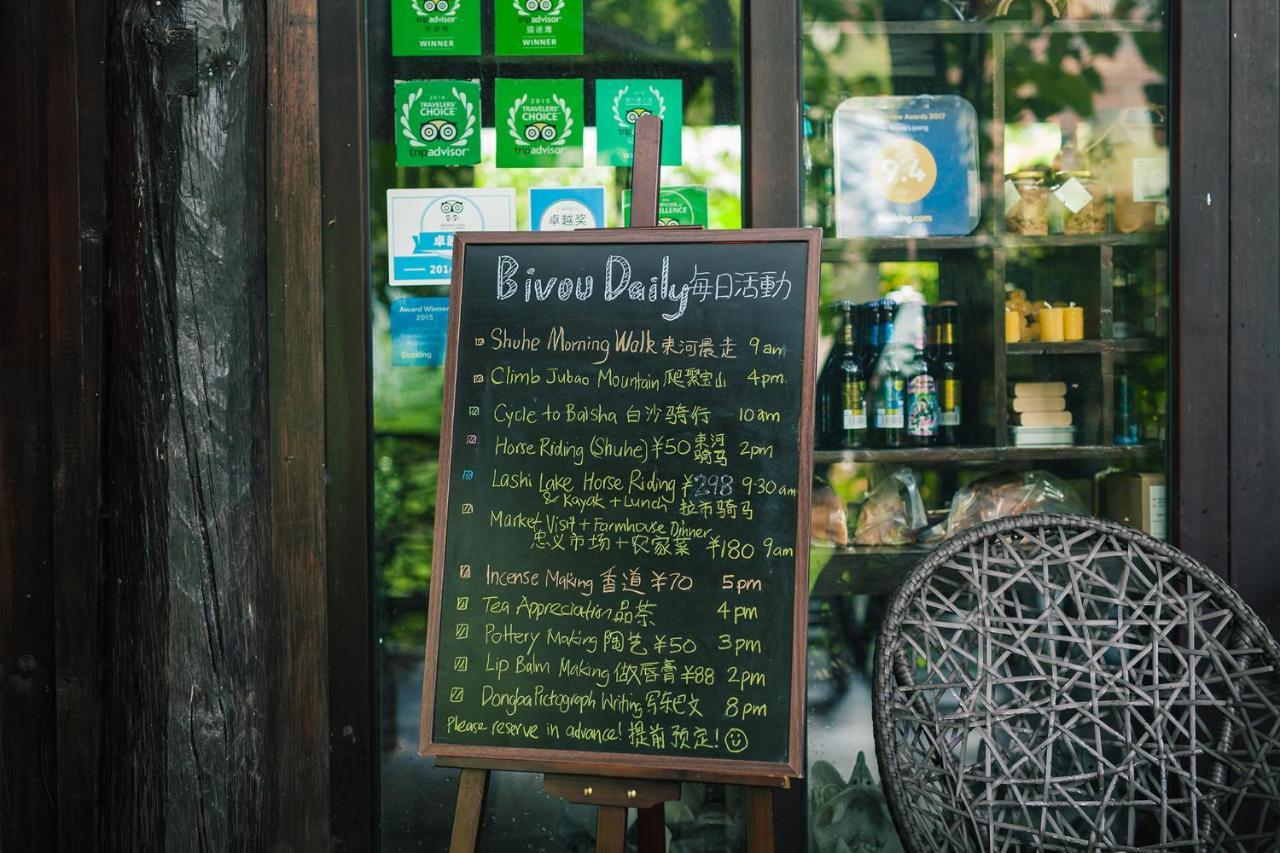 tripadvisor
猫途鹰
WINNER
tripadvisor
猫途鹰
WINNER
2014
TRAVELERS' CHOICE
tripadvisor
2015
TRAVELERS' CHOICE
tripadvisor
WINNER
卓越奖
EXCELLENCE
201
Award Winner
2015
Booking
Awards 2017
Lijiang
9.4
Booking.com
Bivou Daily 每日活動
Shuhe Morning Walk 束河晨走 9am
Climb Jubao Mountain 爬聚宝山 4pm
Cycle to Baisha 白沙骑行 10am
Horse Riding (Shuhe) ¥50 束河骑马 2pm
Lashi Lake Horse Riding ¥298 9:30am
& Kayak + Lunch 拉市骑马
Market Visit + Farmhouse Dinner
忠义市场+农家菜 ¥180 9am
Incense Making 香道 ¥70 5pm
Tea Appreciation 品茶 4pm
Pottery Making 陶艺 ¥50 3pm
Lip Balm Making 做唇膏 ¥88 2pm
Dongba Pictograph Writing 写东巴文 8pm
Please reserve in advance! 提前预定!